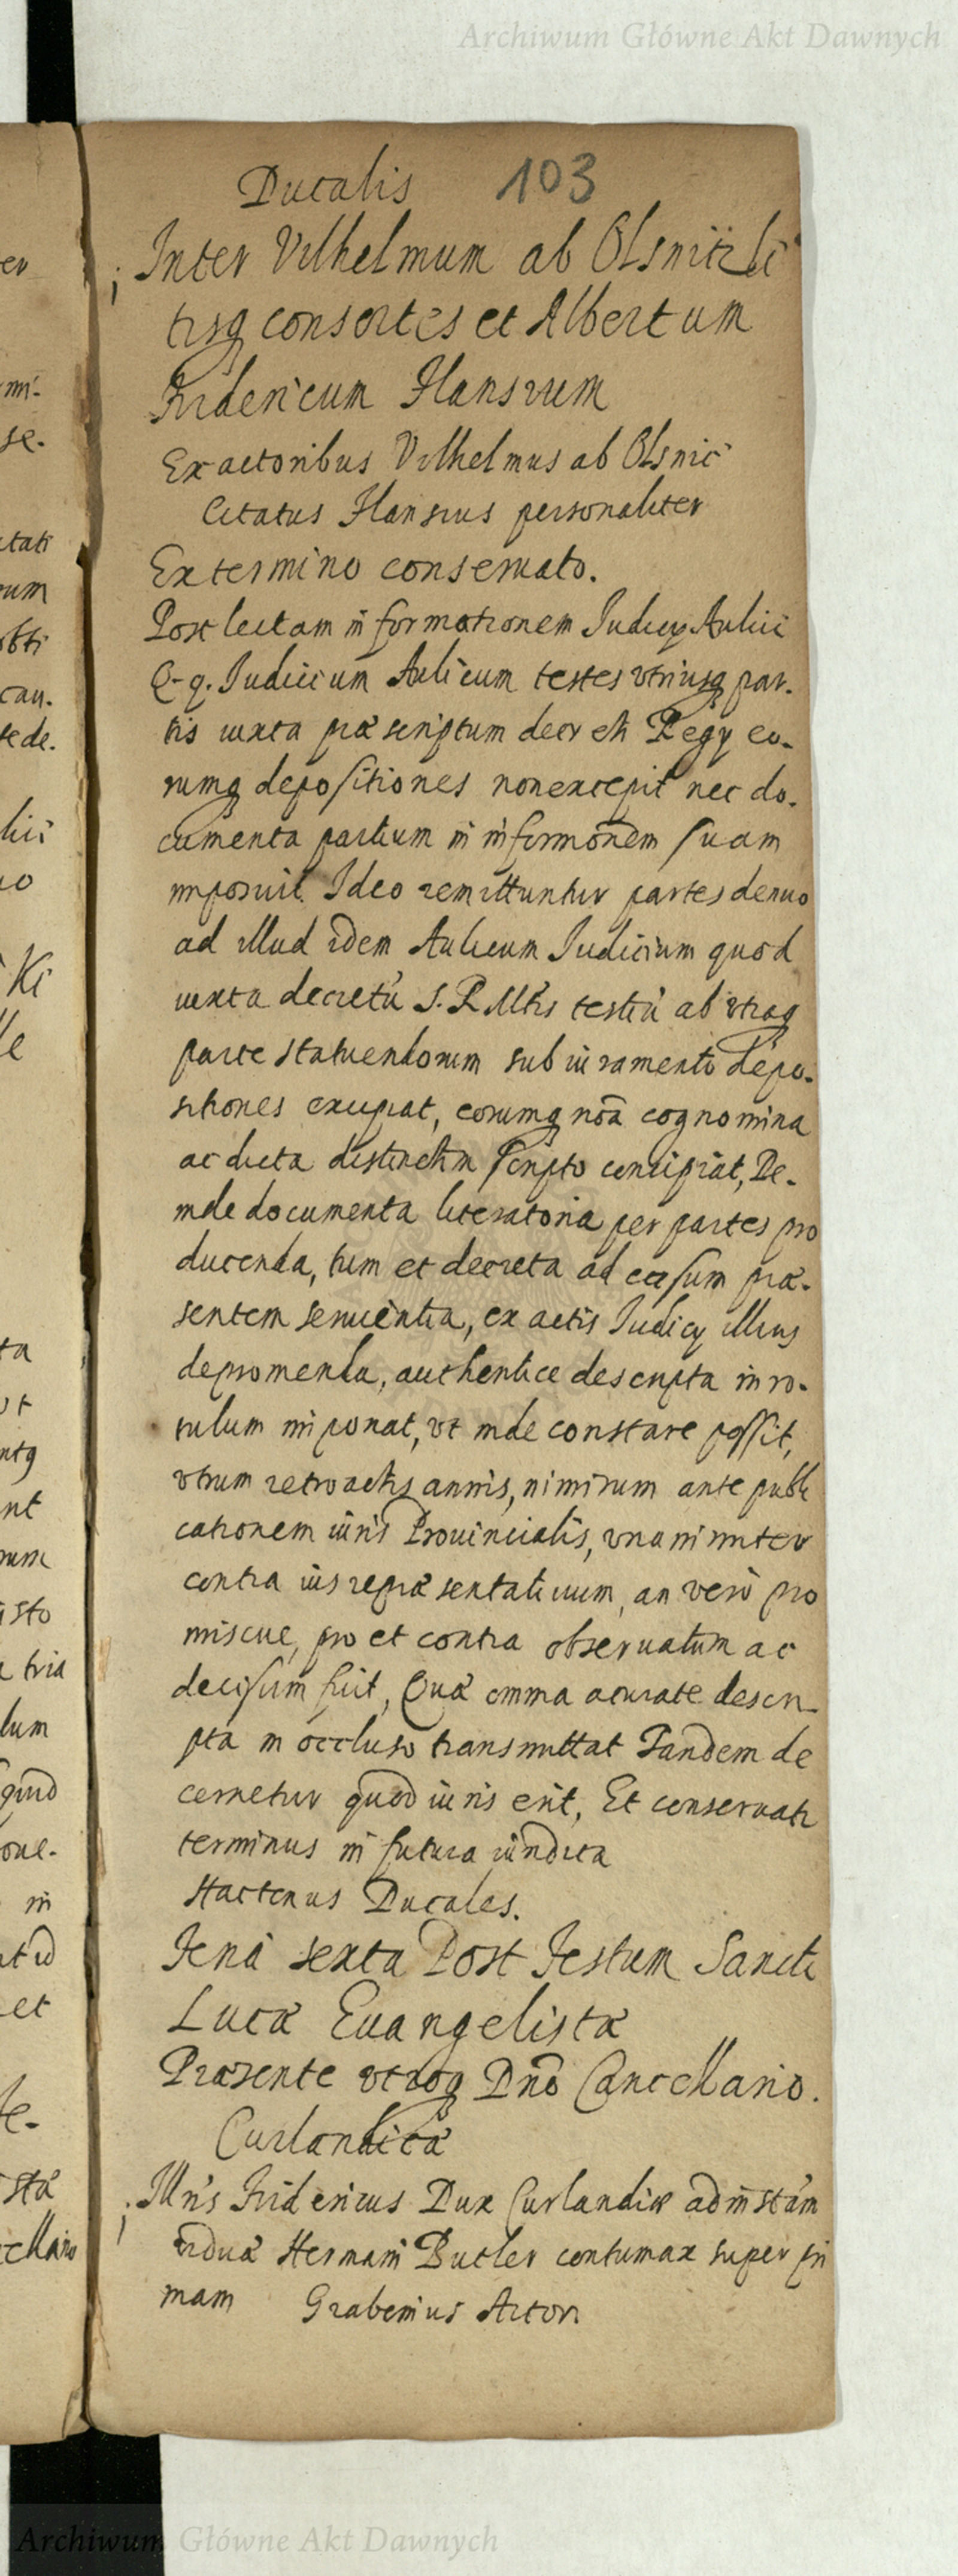 Archiwum Główne Akt Dawnych
Ducalis 103
Inter Vilhelmum ab Olsnitz li
tisq consortes et Albertum
Fridericum Hansium
Ex actoribus Vilhelmus ab Olsnic
Citatus Hansius personaliter
Ex termino conseruato.
Post lectam informationem Judicy Aulici
Q-q. Judicium Aulicum testes vtriusq par-
tis iuxta præscriptum decreti Regy eo-
rumq depositiones non excepit nec do-
cumenta partium in informonem suam
imposuit. Ideo remittuntur partes denuo
ad illud idem Aulicum Judicium quod
iuxta decretu S. R. Mtis testiu ab vtraq
parte statuendorum sub iuramento depo-
sitiones excipiat, eorumq noa cognomina
ac dicta distinctim scripto concipiat, De-
inde documenta literatoria per partes pro
ducenda, tum et decreta ad casum præ-
sentem seruientia, ex actis Judicy illius
depromenda, authentice descripta in ro-
tulum imponat, vt inde constare possit,
vtrum retroactis annis, nimirum ante publi
cationem iuris Prouincialis, vnanimiter
contra ius repræsentatiuum, an vero pro
miscue, pro et contra obseruatum ac
decisum fuit, Quæ omnia acurate descri-
pta in occluso transmittat Tandem de
cernetur quod iuris erit, Et conseruati
terminus in futura iuridica
Hactenus Ducales.
Feria sexta Post Festum Sancti
Lucæ Euangelistæ
Præsente vtroq Dno Cancellario.
Curlandica
Illris Fridericus Dux Curlandiæ ad instam
viduæ Hermani Butler contumax super pri
mam Grabenius Actori
Archiwum Główne Akt Dawnych